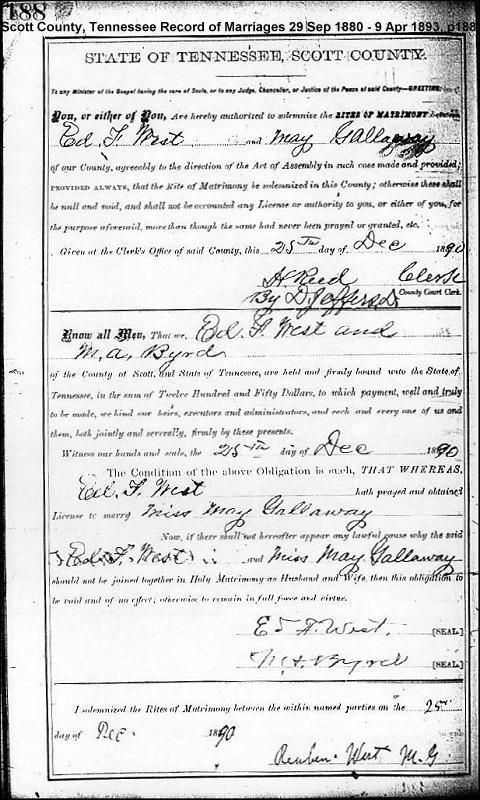 188
Scott County, Tennessee Record of Marriages 29 Sep 1880 - 9 Apr 1893, p188
STATE OF TENNESSEE, SCOTT COUNTY.
To any Minister of the Gospel having the care of Souls, or to any Judge, Chancellor, or Justice of the Peace of said County—GREETING:
You, or either of You, Are hereby authorized to solemnize the RITES OF MATRIMONY between
Ed. F. West and May Gallaway
of our County, agreeably to the direction of the Act of Assembly in such case made and provided;
PROVIDED ALWAYS, that the Rite of Matrimony be solemnized in this County; otherwise these shall
be null and void, and shall not be accounted any License or authority to you, or either of you, for
the purpose aforesaid, more than though the same had never been prayed or granted, etc.
Given at the Clerk's Office of said County, this 25th day of Dec 1890
H. Reed Clerk
By D. Jeffers, D. County Court Clerk.
Know all Men, That we, Ed. F. West and
M. A. Byrd
of the County of Scott, and State of Tennessee, are held and firmly bound unto the State of
Tennessee, in the sum of Twelve Hundred and Fifty Dollars, to which payment, well and truly
to be made, we bind our heirs, executors and administrators, and each and every one of us and
them, both jointly and severally, firmly by these presents.
Witness our hands and seals, the 25th day of Dec 1890
The Condition of the above Obligation is such, THAT WHEREAS,
Ed. F. West hath prayed and obtained
License to marry Miss May Gallaway
Now, if there shall not hereafter appear any lawful cause why the said
Ed. F. West and Miss May Gallaway
should not be joined together in Holy Matrimony as Husband and Wife, then this obligation to
be void and of no effect; otherwise to remain in full force and virtue.
Ed F. West. [SEAL.]
M A Byrd [SEAL.]
I solemnized the Rites of Matrimony between the within named parties on the 25th
day of Dec. 1890
Reuben West M. G.